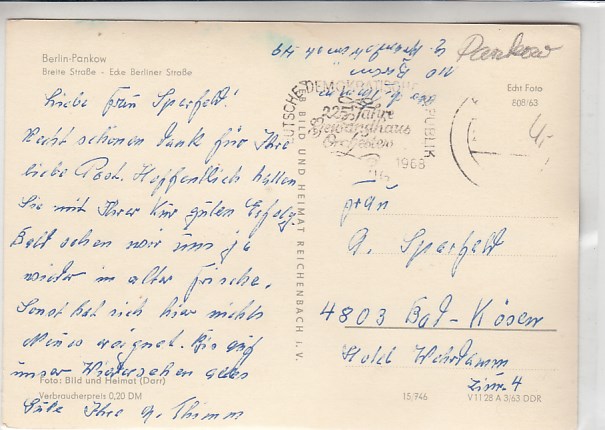 Berlin-Pankow
Breite Straße - Ecke Berliner Straße
Liebe Frau Sperfeld!
Recht schönen Dank für Ihre
liebe Post. Hoffentlich hatten
Sie mit Ihrer Kur guten Erfolg.
Bald sehen wir uns ja
wieder in alter Frische.
Sonst hat sich hier nichts
Neues ereignet. Bis auf
unser Wiedersehen alles
Gute Ihre A. Thimm
Foto: Bild und Heimat (Darr)
Verbraucherpreis 0,20 DM
VEB BILD UND HEIMAT REICHENBACH I. V.
Pankow
Echt Foto
808/63
DEUTSCHE DEMOKRATISCHE REPUBLIK
225 Jahre
Gewandhaus
Orchester
1968
Frau
A. Sperfeld
4803 Bad-Kösen
Hotel Wehrdamm
Zim. 4
15 746
V 11 28 A 3/63 DDR